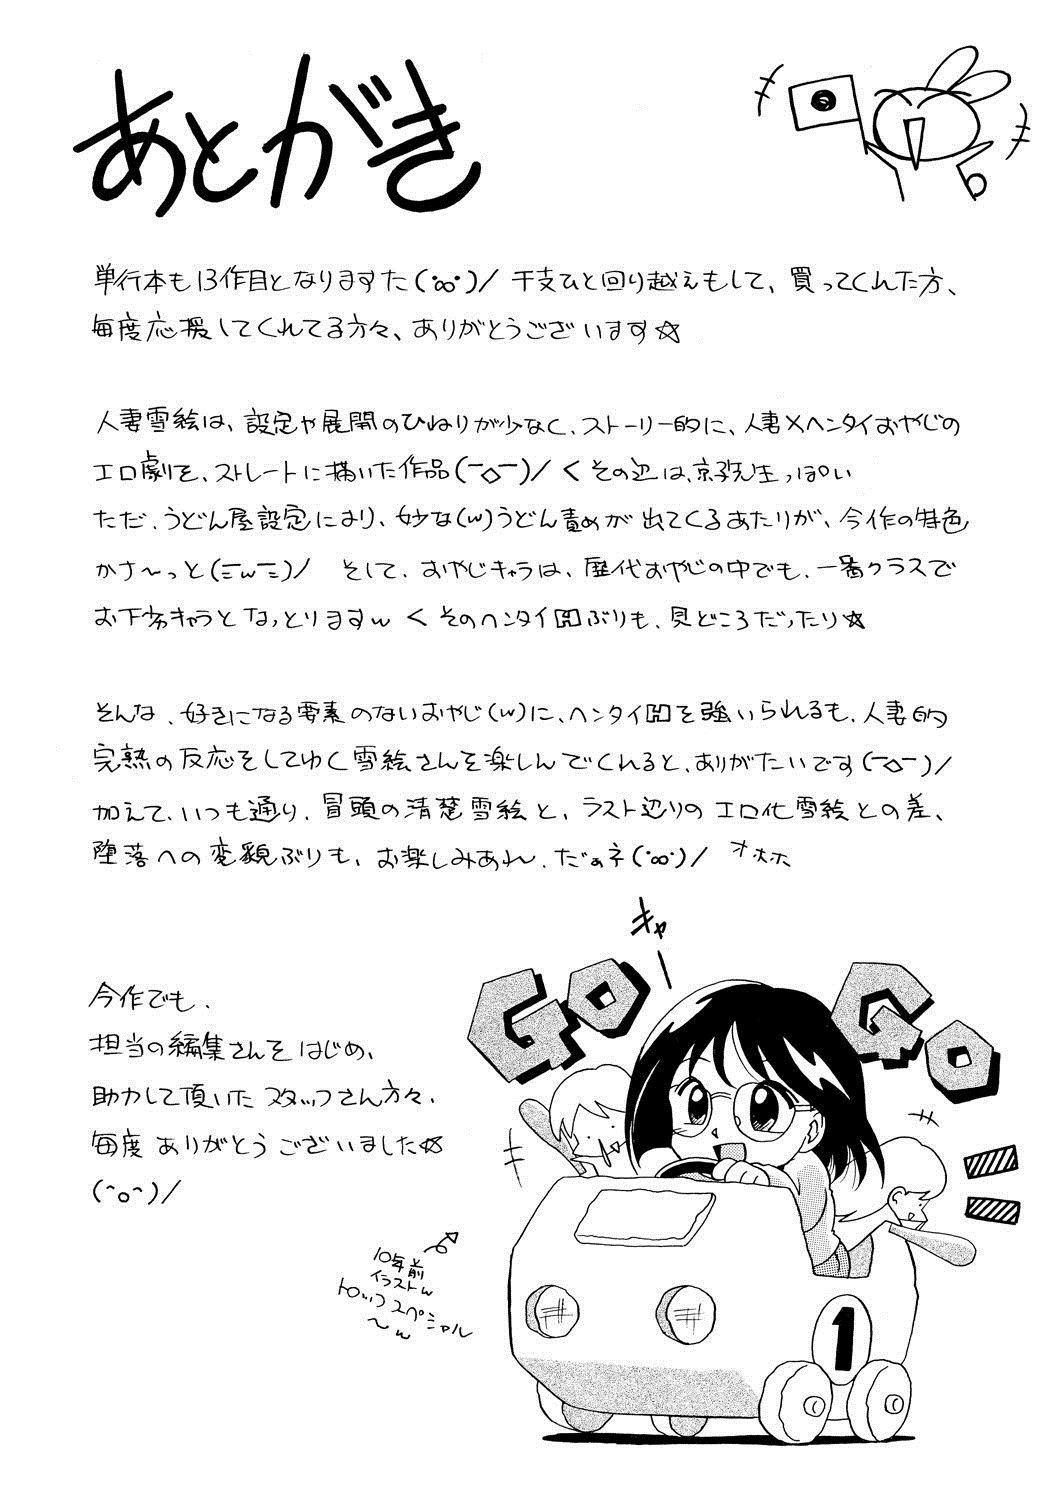 あとがき
単行本も13作目となりますた(・oo・)/ 干支ひと回り越えもして、買ってくれた方、
毎度応援してくれてる方々、ありがとうございます☆
人妻雪絵は、設定や展開のひねりが少なく、ストーリー的に、人妻×ヘンタイおやじの
エロ劇を、ストレートに描いた作品(￣◇￣)/ くその辺は、京子先生っぽい
ただ、うどん屋設定により、妙な(w)うどん責めが出てくるあたりが、今作の特色
かさ〜っと(ﾆwﾆ)/ そして、おやじキャラは、歴代おやじの中でも、一番クラスで
お下劣キャラとなっとりますw くそのヘンタイHぶりも、見どころだったり☆
そんな、好きになる要素のないおやじ(w)に、ヘンタイHを強いられるも、人妻的
完熟の反応をしてゆく雪絵さんを楽しんでくれると、ありがたいです(￣◇￣)/
加えて、いつも通り、冒頭の清楚雪絵と、ラスト辺りのエロ化雪絵との差、
堕落への変貌ぶりも、お楽しみあれ、だぁネ(・oo・)/ オホホ
今作でも、
担当の編集さんをはじめ、
助力して頂いたスタッフさん方々、
毎度ありがとうございました☆
(^o^)/
キャ
GO GO
10年前
イラストw
トップスペシャル
〜w
1